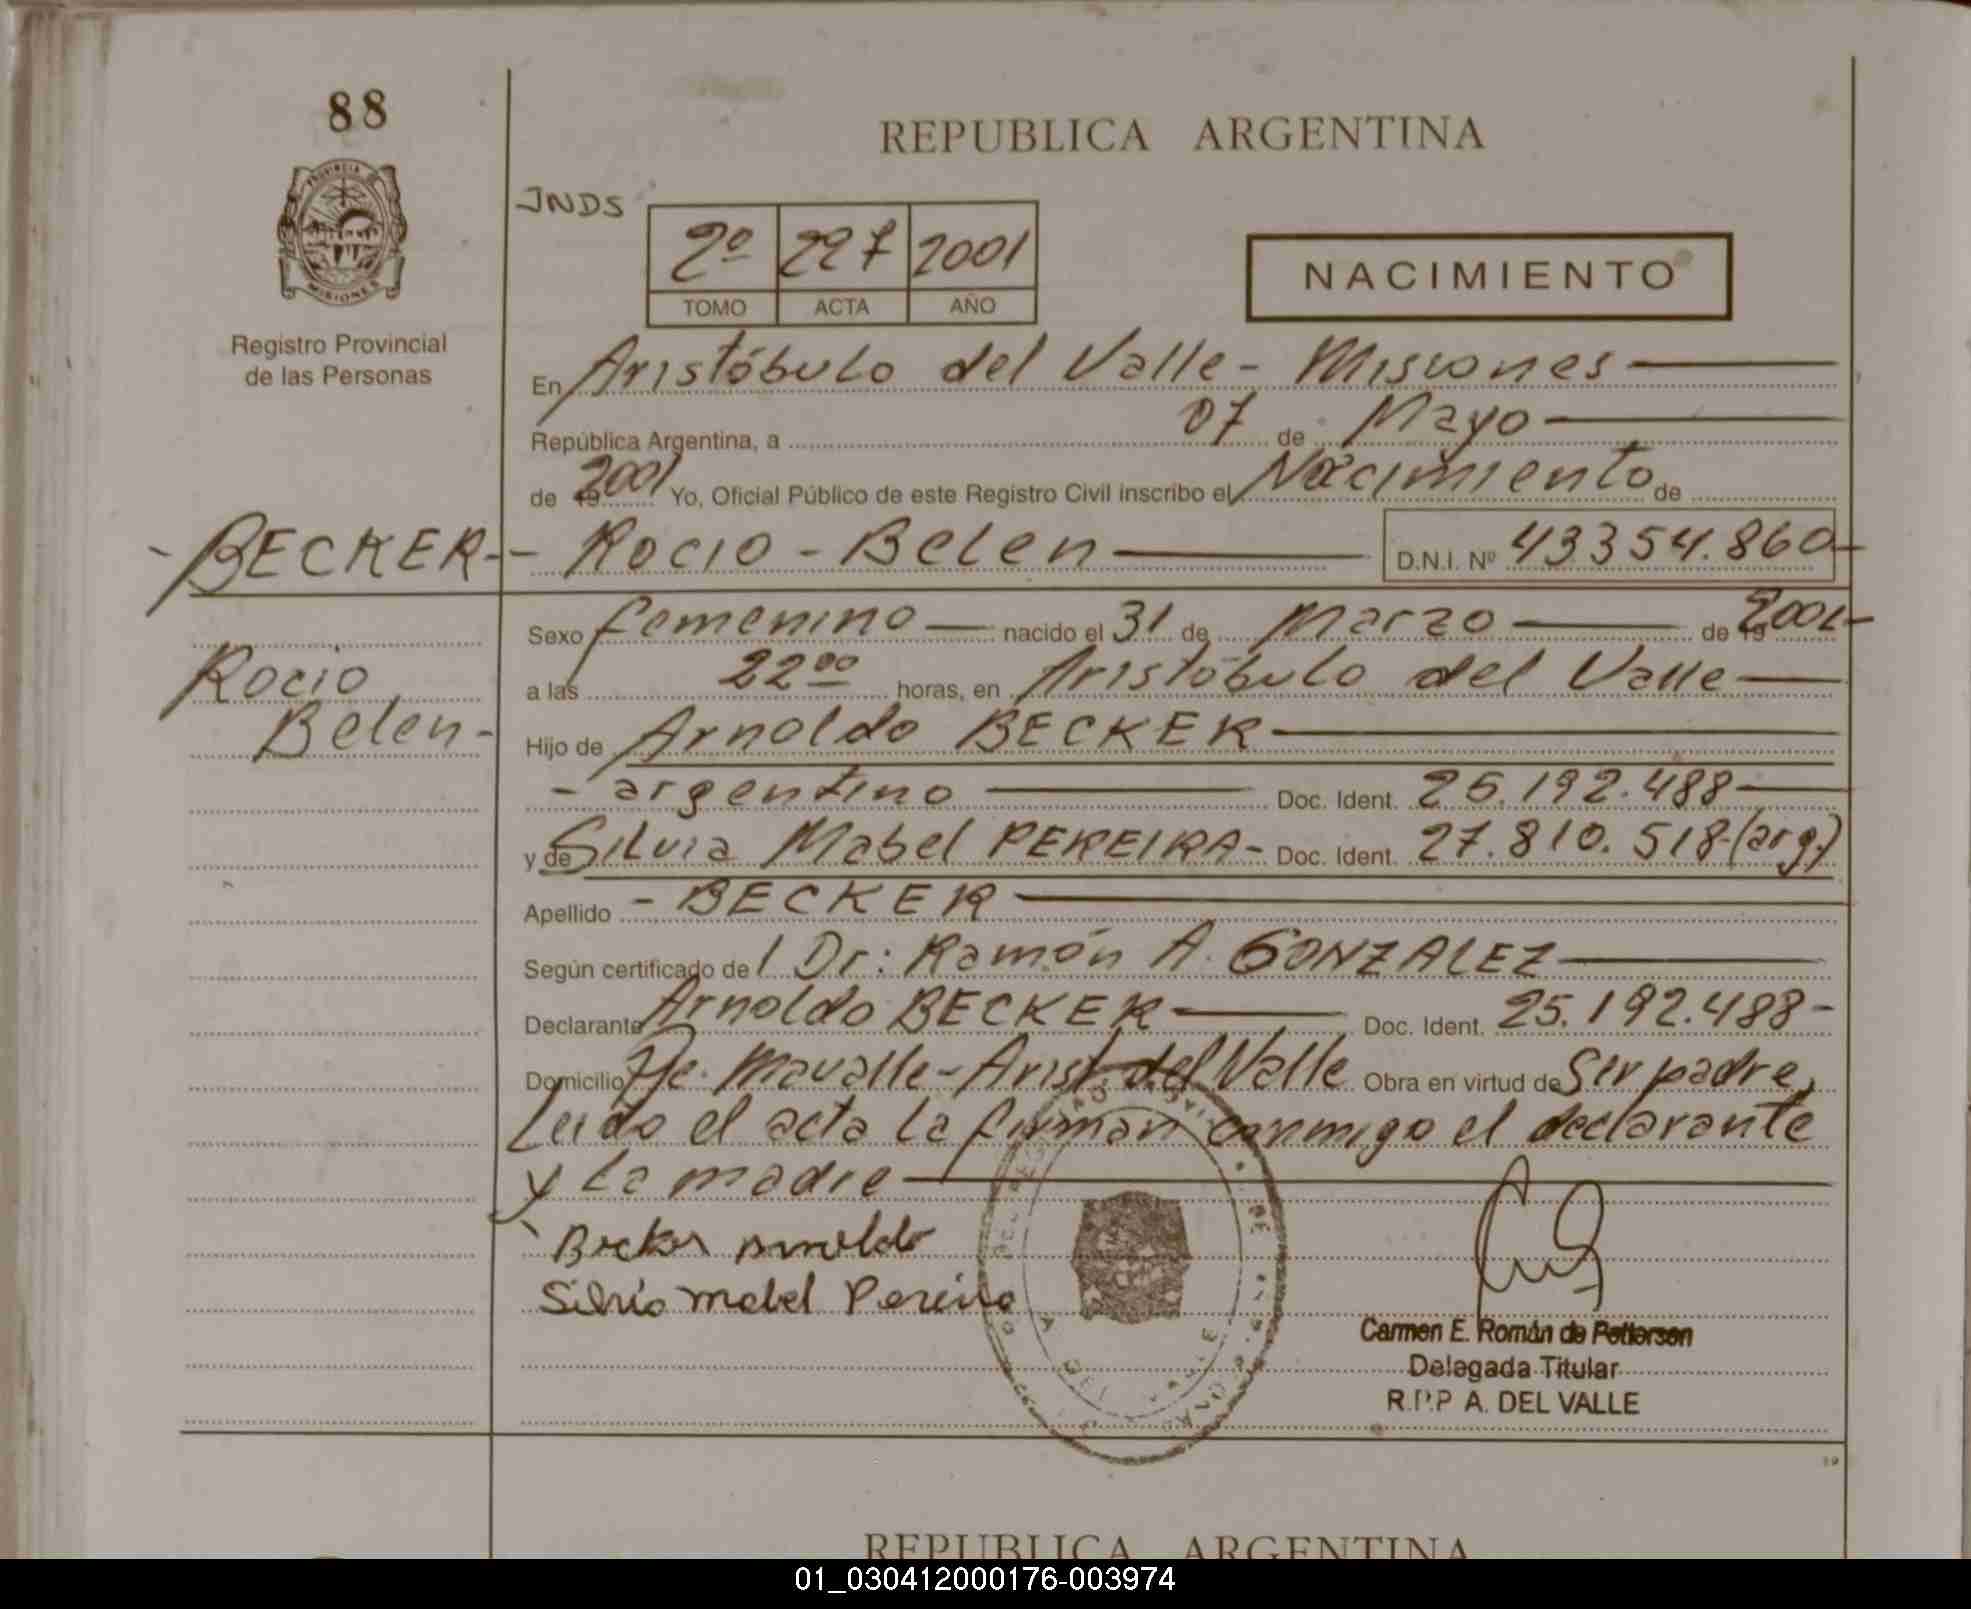 88
REPUBLICA ARGENTINA
PROVINCIA
MISIONES
Registro Provincial
de las Personas
JNDS
2º 227 2001
TOMO ACTA AÑO
NACIMIENTO
En Aristóbulo del Valle - Misiones
República Argentina, a 07 de Mayo
de 2001 Yo, Oficial Público de este Registro Civil inscribo el Nacimiento de
- BECKER - - Rocio - Belen D.N.I. Nº 43354.860
Sexo femenino nacido el 31 de Marzo de 2001-
Rocio
Belen-
a las 22⁰⁰ horas, en Aristóbulo del Valle
Hijo de Arnoldo BECKER
- argentino Doc. Ident. 25.192.488
y de Silvia Mabel PEREIRA- Doc. Ident. 27.810.518-(arg.)
Apellido - BECKER
Según certificado del Dr: Ramón A. GONZALEZ
Declarante Arnoldo BECKER Doc. Ident. 25.192.488-
Domicilio Pje. Mavalle-Arist. del Valle Obra en virtud de Ser padre,
Leido el acta la firman conmigo el declarante
y la madre
Becker Arnoldo
Silvia Mabel Pereira
DEL VALLE
Carmen E. Román de Petterson
Delegada Titular
R.P.P A. DEL VALLE
REPUBLICA ARGENTINA
01_030412000176-003974